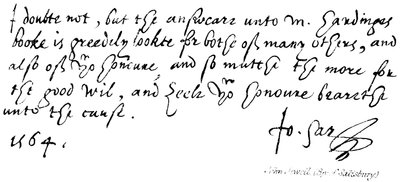 I doubte not, but the answeare unto M. Hardinges
booke is greedely lookte for bothe of many others, and
also of yo honoure, and so mutche the more for
the good wil, and zeele yo honoure bearethe
unto the cause.
1564.
Jo. Sar
John Jewell (Bp. of Salisbury)